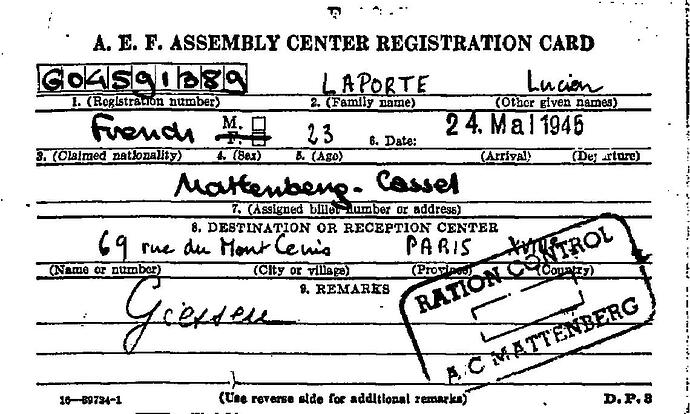 A. E. F. ASSEMBLY CENTER REGISTRATION CARD
G04591389 LAPORTE Lucien
1. (Registration number) 2. (Family name) (Other given names)
French M. F. 23 6. Date: 24. Mai 1945
3. (Claimed nationality) 4. (Sex) 5. (Age) (Arrival) (Departure)
Mattenberg - Cassel
7. (Assigned billet number or address)
8. DESTINATION OR RECEPTION CENTER
69 rue du Mont Cenis PARIS
(Name or number) (City or village) (Province) (Country)
9. REMARKS
Giessen
RATION CONTROL
A C MATTENBERG
16—39734-1 (Use reverse side for additional remarks) D. P. 3